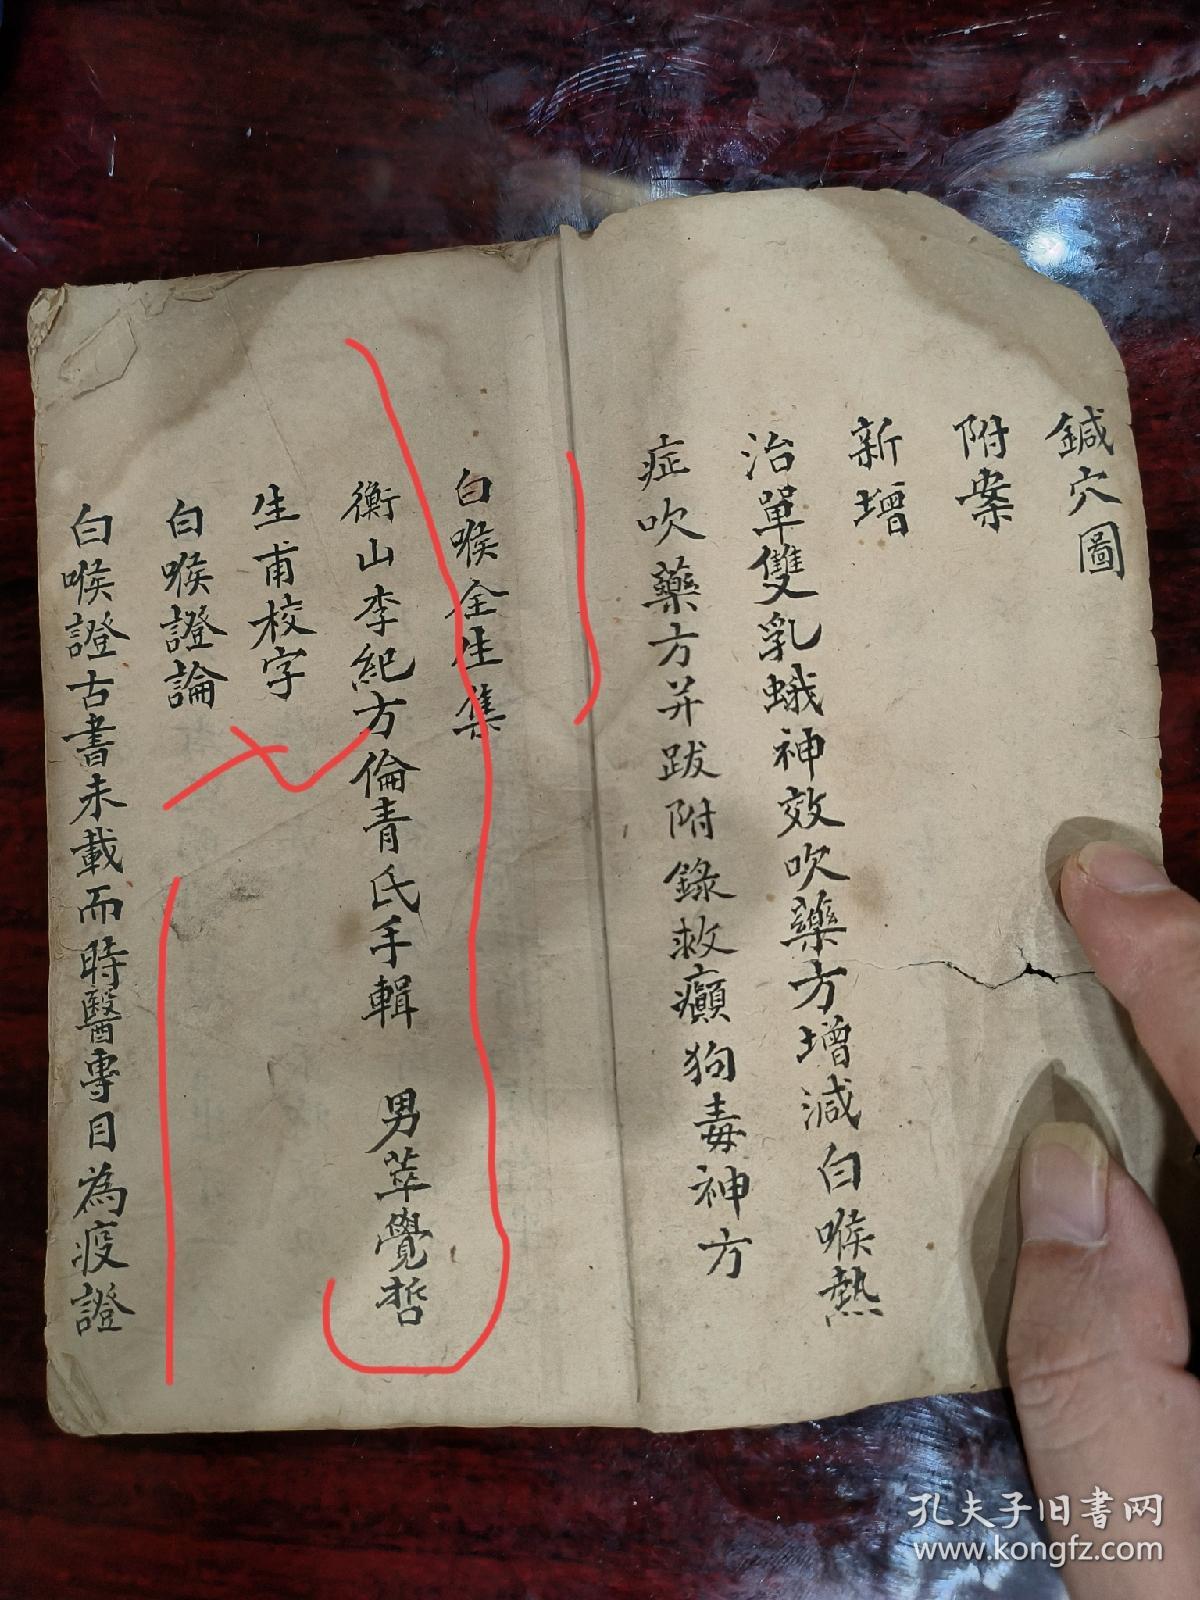 鍼穴圖
附案
新增
治單雙乳蛾神效吹藥方增減白喉熱
症吹藥方并跋附錄救癲狗毒神方
白喉全生集
衡山李紀方倫青氏手輯 男萃覺哲
生甫校字
白喉證論
白喉證古書未載而時醫專目為疫證
孔夫子旧书网
www.kongfz.com